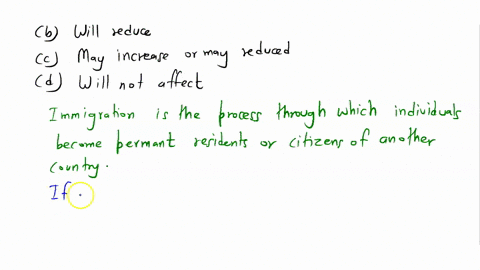 (b) Will reduce
(c) May increase or may reduced
(d) Will not affect
Immigration is the process through which individuals
become permant residents or citizens of another
country.
If